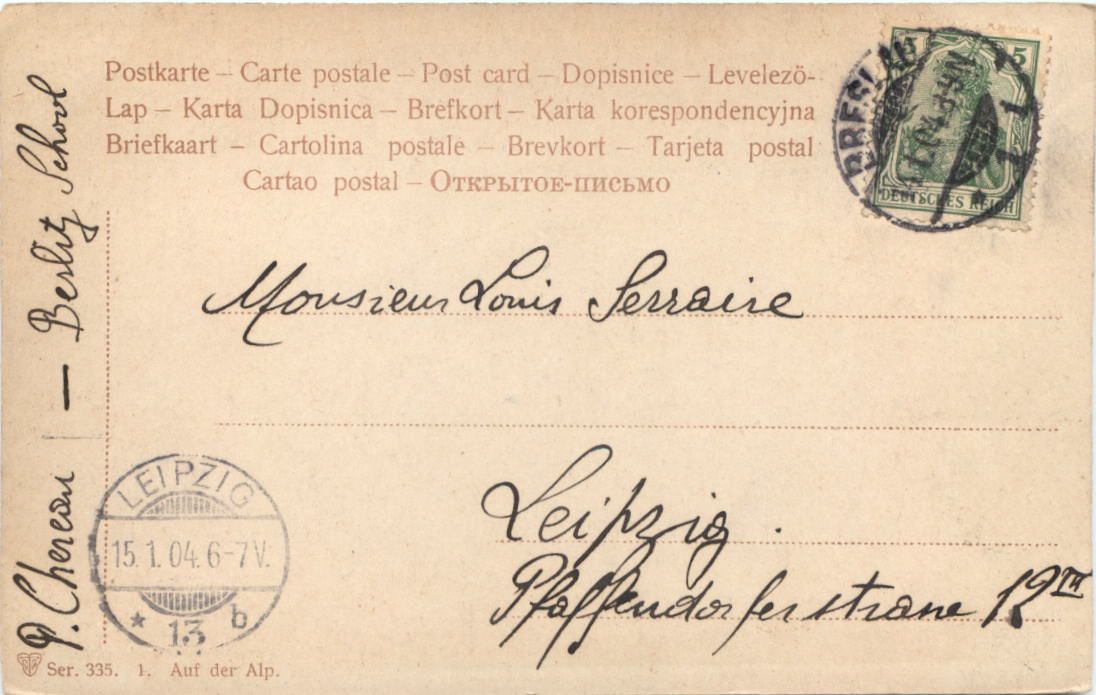 Postkarte – Carte postale – Post card – Dopisnice – Levelezö-
Lap – Karta Dopisnica – Brefkort – Karta korespondencyjna
Briefkaart – Cartolina postale – Brevkort – Tarjeta postal
Cartao postal – Открытое-письмо
BRESLAU
1
5
DEUTSCHES REICH
Monsieur Louis Serraire
Leipzig.
Pfaffendorferstrasse 12 III
P. Chereau — Berlitz School
LEIPZIG
15.1.04.6-7V.
* 13 b
Ser. 335. 1. Auf der Alp.